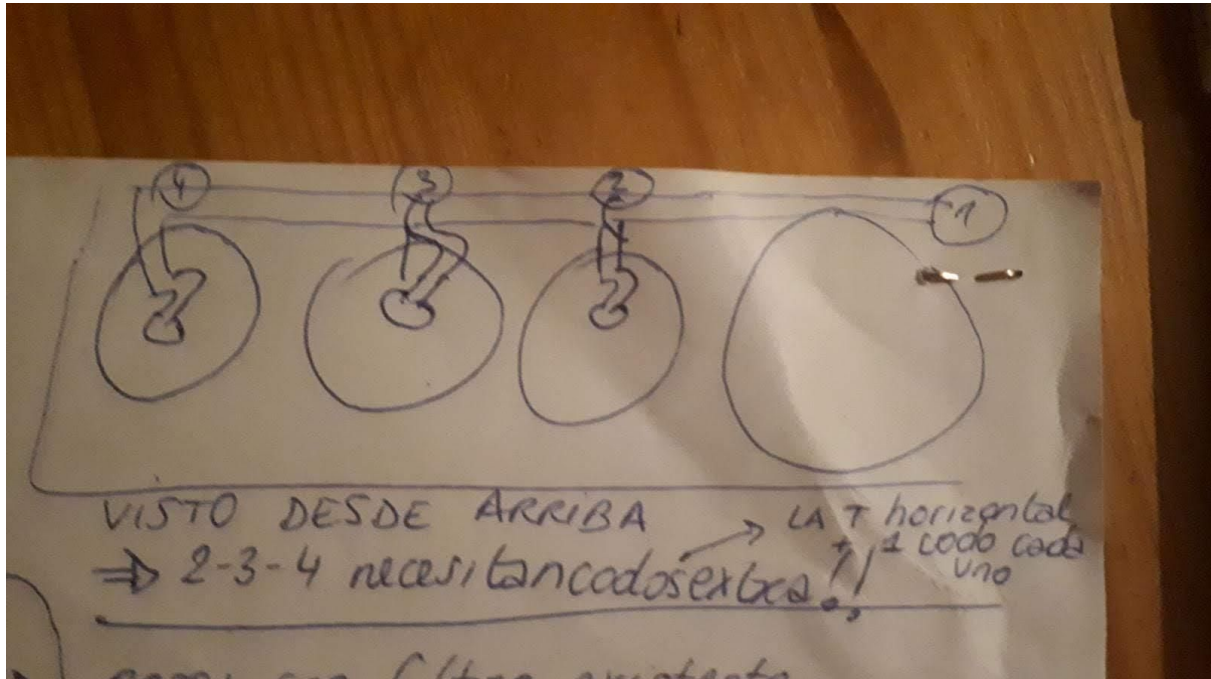 4 3 2 1
VISTO DESDE ARRIBA
LA T horizontal
+ 1 codo cada
uno
⇒ 2-3-4 necesitan codos extra!!